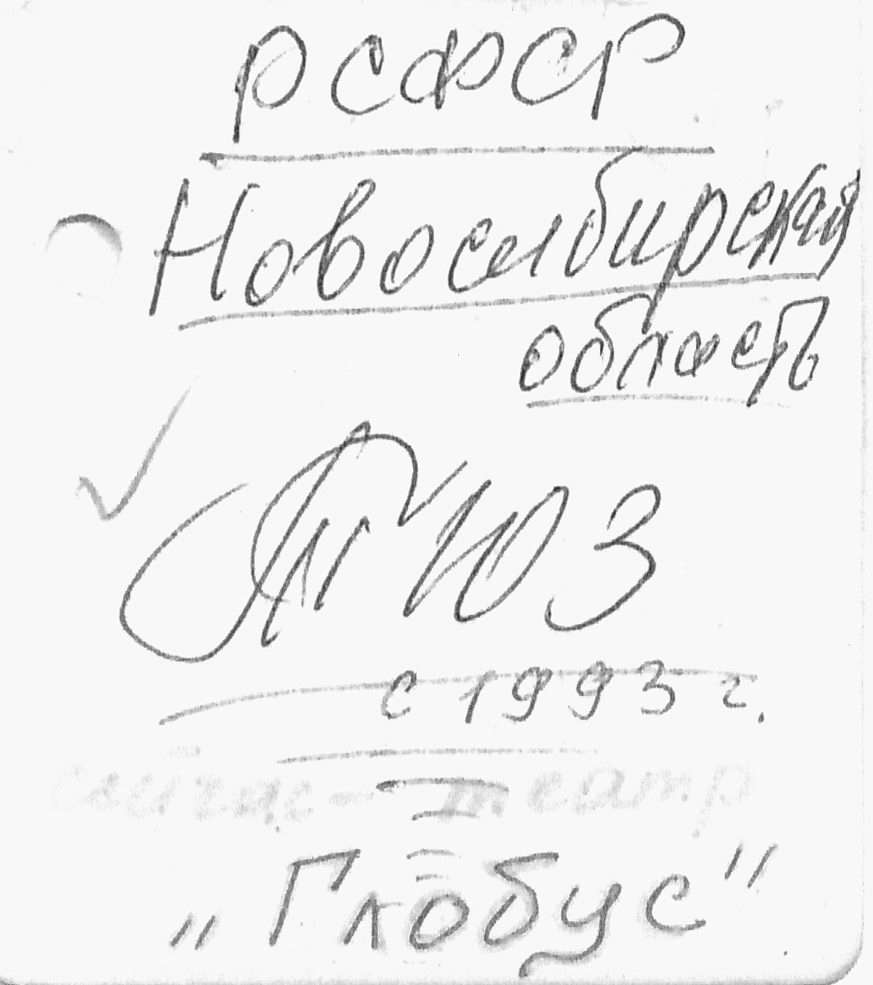 РСФСР
Новосибирская
область
ТЮЗ
с 1993 г.
сейчас - театр
„Глобус"